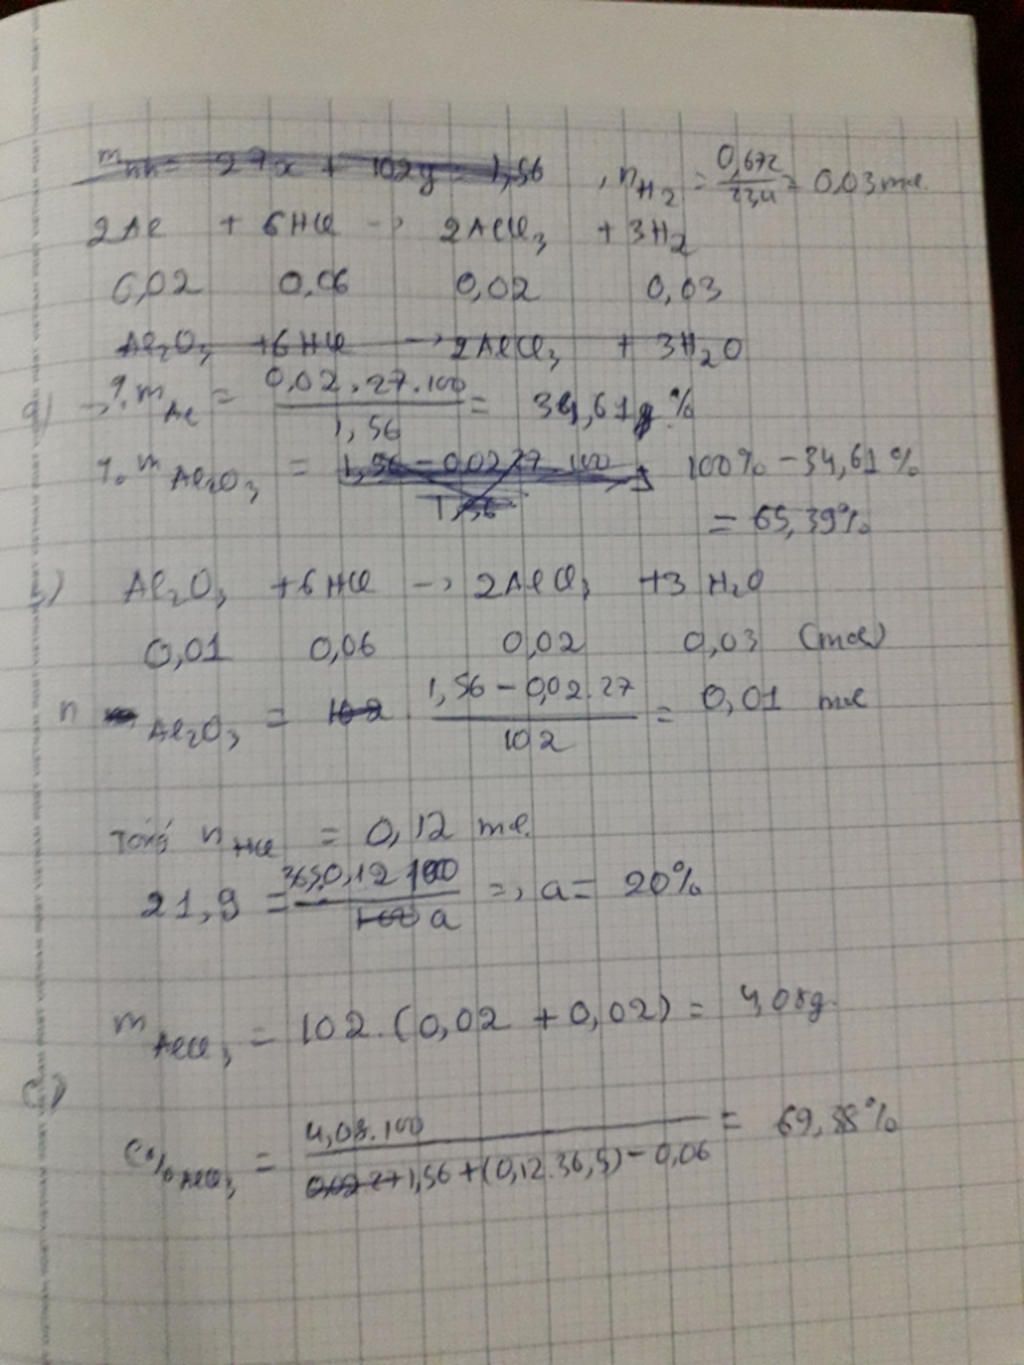 m hh = 27x + 102y = 1,56 , nH2 = 0,672/22,4 = 0,03 mol.
2Al + 6HCl → 2AlCl3 + 3H2
0,02 0,06 0,02 0,03
Al2O3 + 6HCl → 2AlCl3 + 3H2O
a) → % mAl = 0,02.27.100/1,56 = 34,61 %
% mAl2O3 = 1,56 - 0,02.27.100/1,56 100% - 34,61%
= 65,39%
b) Al2O3 + 6HCl → 2AlCl3 + 3H2O
0,01 0,06 0,02 0,03 (mol)
n Al2O3 = 102 1,56 - 0,02.27/102 = 0,01 mol
Tổng nHCl = 0,12 mol.
21,9 = 36,5.0,12.100/100 a =, a = 20%
mAlCl3 = 102.(0,02 + 0,02) = 4,08g
c)
C%AlCl3 = 4,08.100/0,02.27+1,56+(0,12.36,5)-0,06 = 69,38%